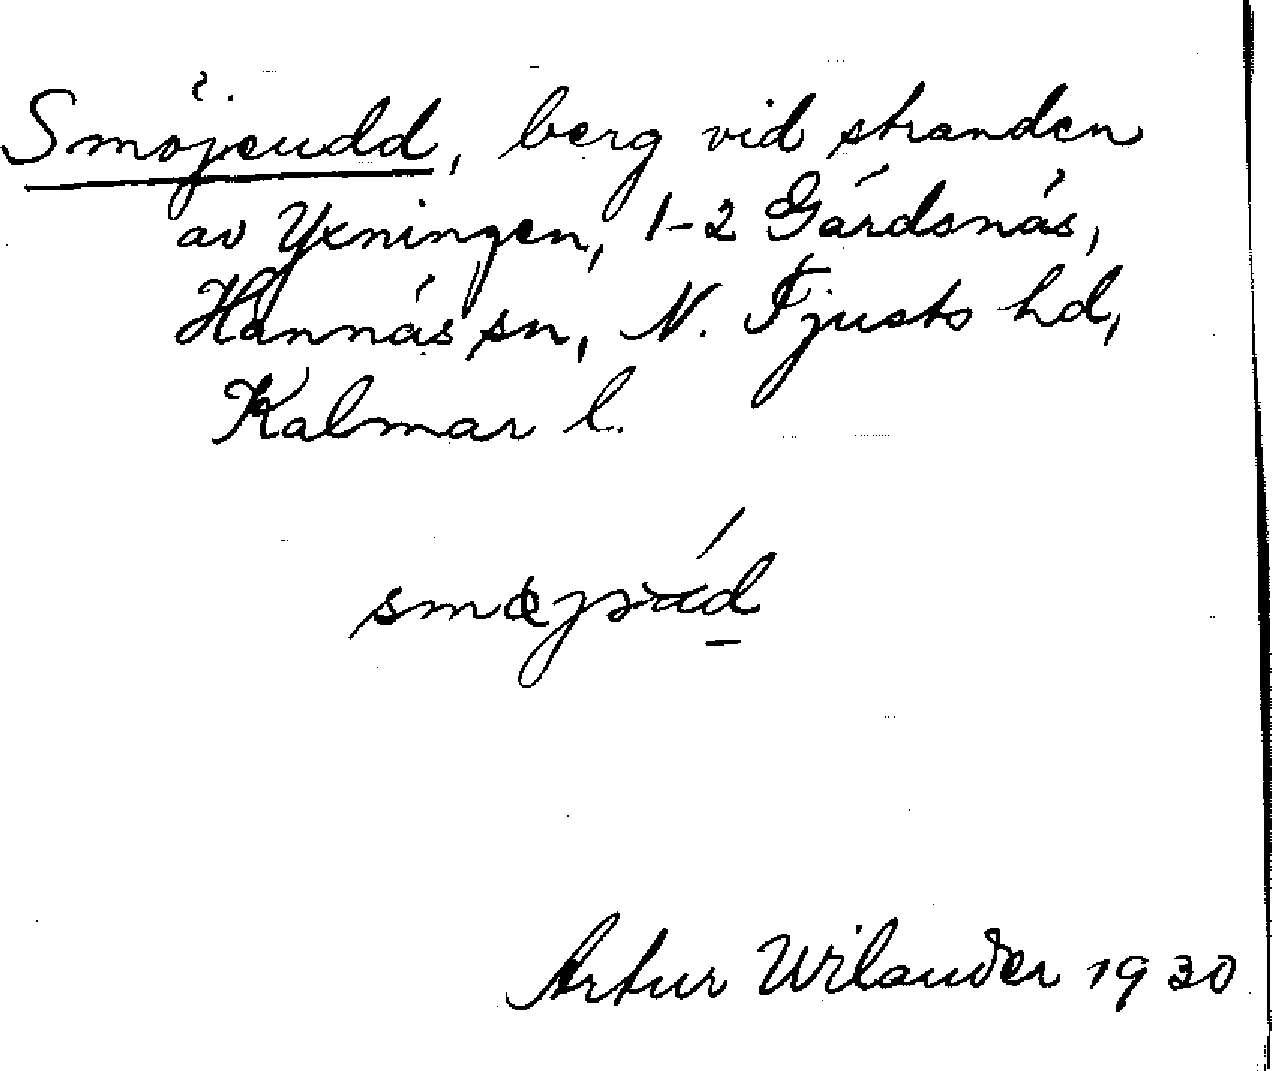 Smöjeudd, berg vid stranden
av Yxningen, 1-2 Gärdsnäs,
Hannäs sn, N. Tjusts hd,
Kalmar l.
Artur Wilander 1930